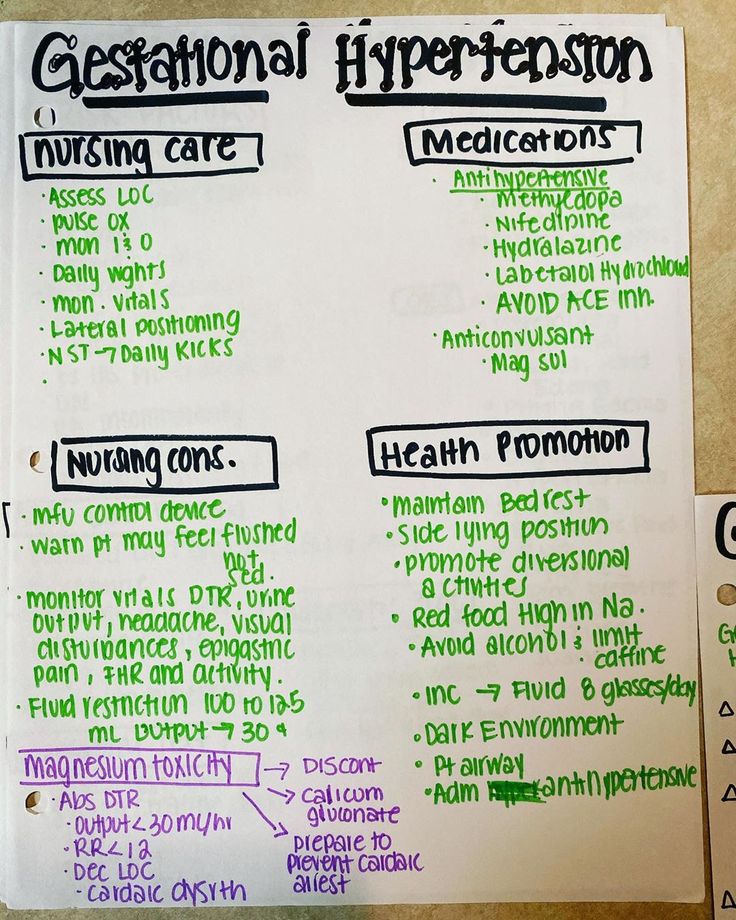 Gestational Hypertension
nursing care
· Assess LOC
· pulse ox
· mon I & O
· Daily wghts
· mon. vitals
· Lateral positioning
· NST → Daily KICKS
·
Medications
· Antihypertensive
· Methyldopa
· Nifedipine
· Hydralazine
· Labetalol Hydrochlorid
· AVOID ACE inh.
· Anticonvulsant
· Mag sul
Nursing cons.
· mfu control device
· warn pt may feel flushed
hot
sed.
· monitor vitals DTR, urine
output, headache, visual
disturbances, epigastric
pain, FHR and activity.
· Fluid restriction 100 to 125
mL output → 30
Health Promotion
· maintain Bedrest
· side lying position
· promote diversional
activities
· Red food High in Na.
· Avoid alcohol & limit
· caffine
· inc → Fluid 8 glasses/day
· Dark Environment
· Pt airway
· Adm antihypertensive
magnesium toxicity → Discont
· Abs DTR
· output < 30 mL/hr
· RR < 12
· Dec LOC
· cardaic dysrth
→ calicum
gluconate
→ prepare to
prevent cardaic
arrest
G